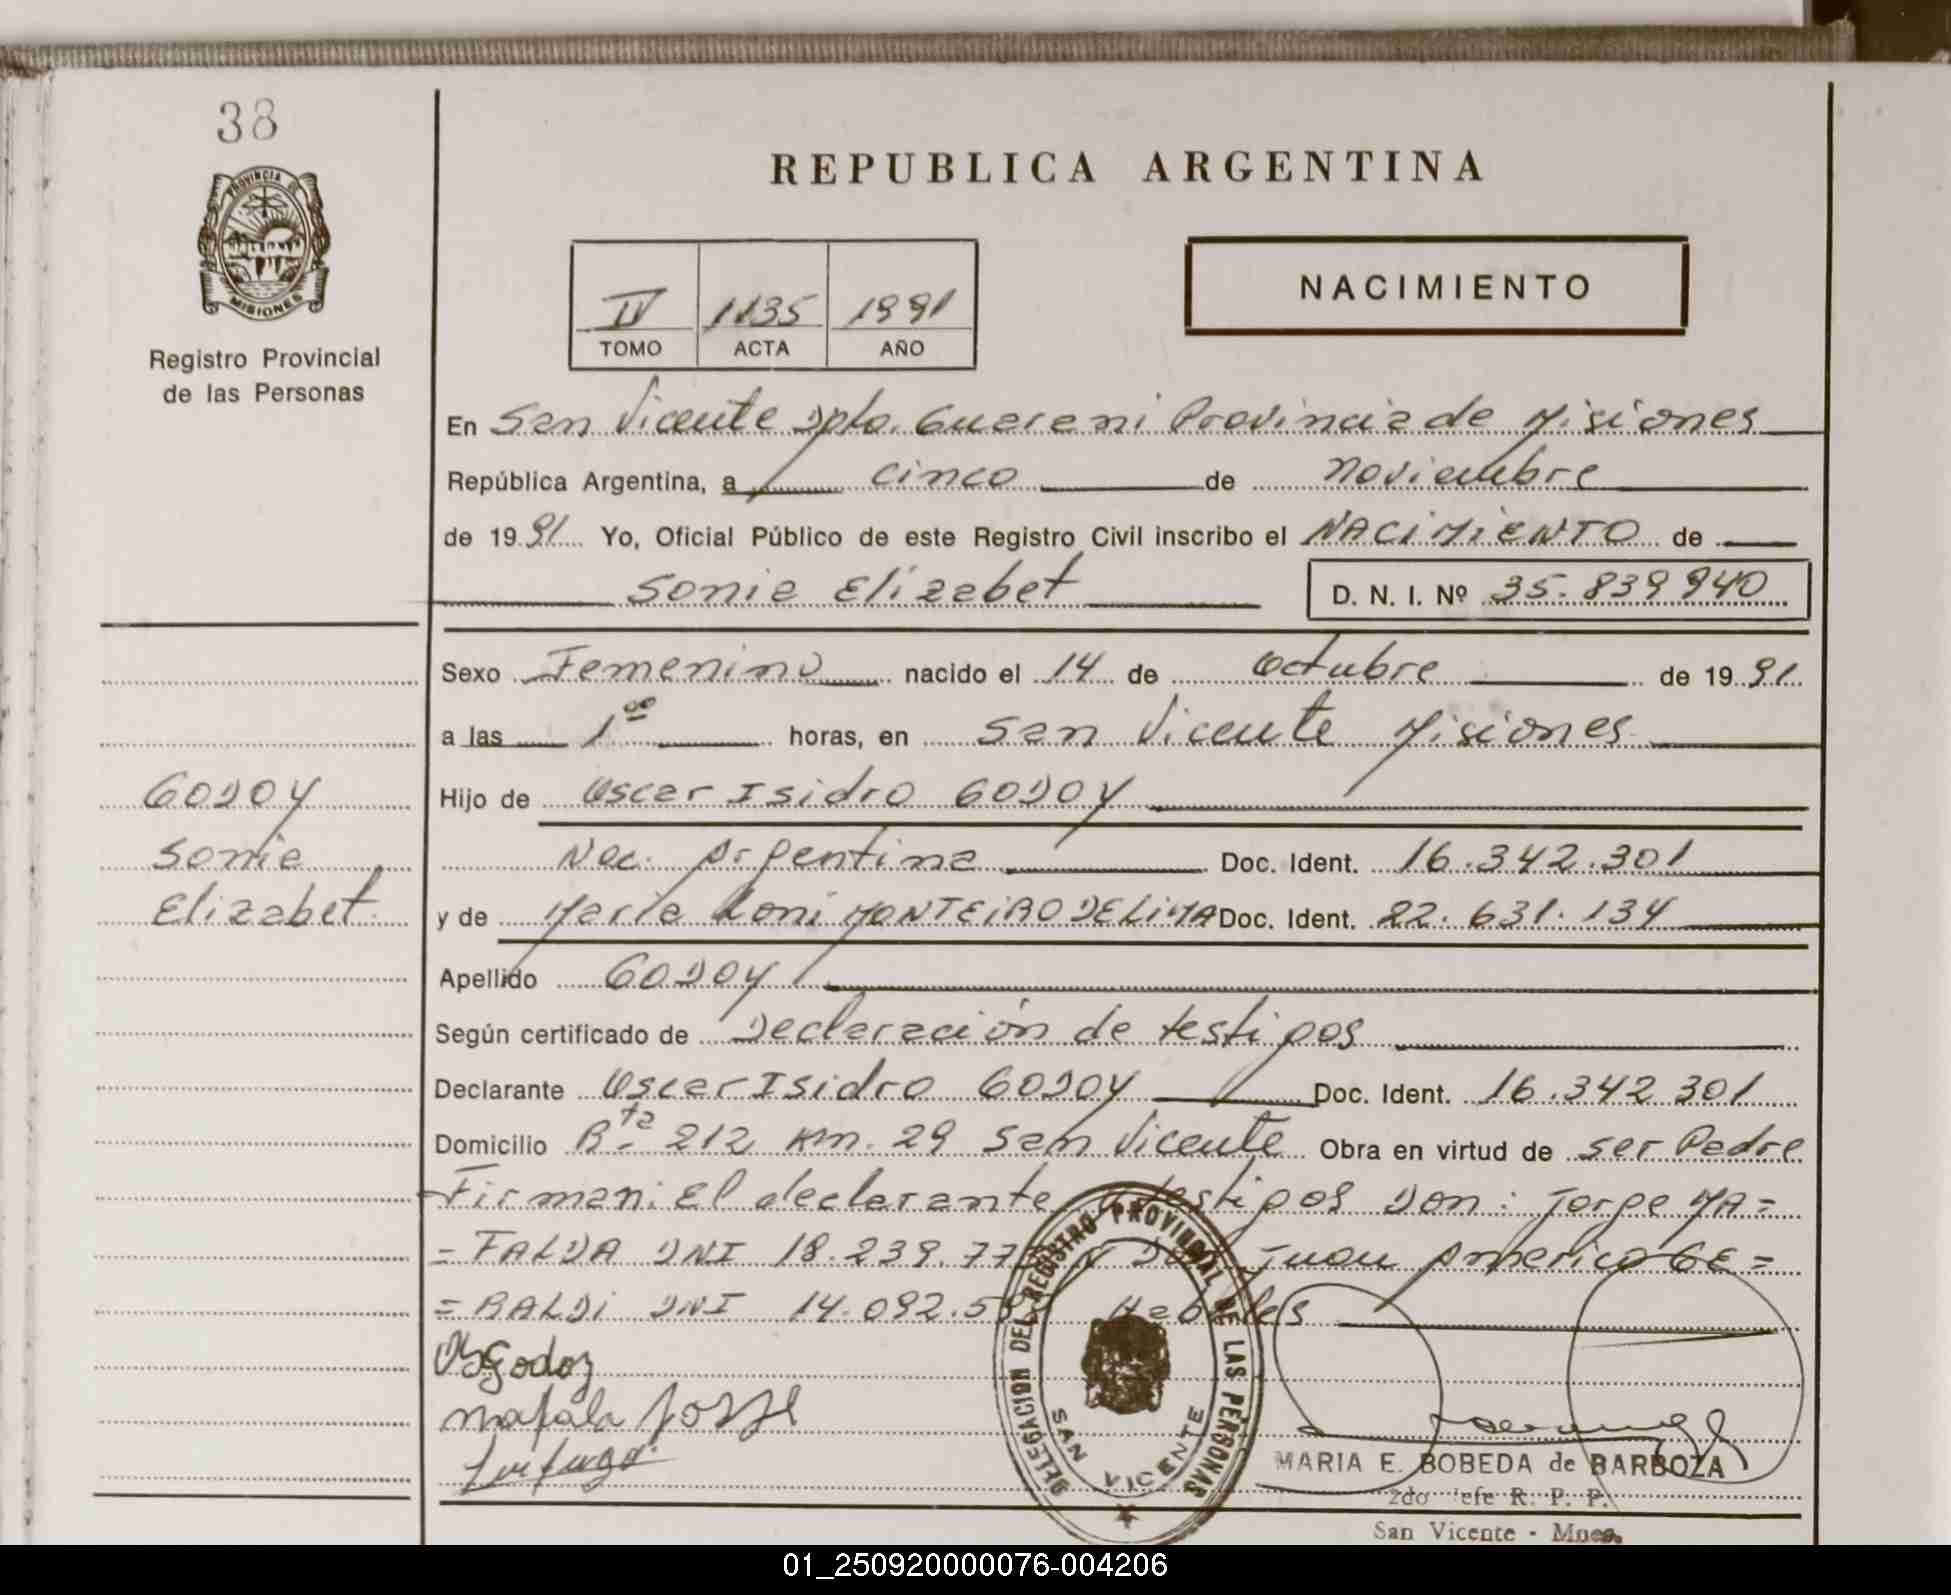 38
PROVINCIA DE
MISIONES
Registro Provincial
de las Personas
REPUBLICA ARGENTINA
IV 1135 1991
TOMO ACTA AÑO
NACIMIENTO
En San Vicente Dpto. Guarani Provincia de Misiones
República Argentina, a cinco de noviembre
de 1991 Yo, Oficial Público de este Registro Civil inscribo el NACIMIENTO de
Sonia Elizabet D. N. I. Nº 35.839940
Sexo Femenino nacido el 14 de Octubre de 1991
a las 1 oo horas, en San Vicente Misiones
Hijo de Oscar Isidro GODOY
Nac. Argentina Doc. Ident. 16.342.301
y de Maria Loni MONTEIRO DE LIMA Doc. Ident. 22.631.134
Apellido GODOY
Según certificado de Declaración de testigos
Declarante Oscar Isidro GODOY Doc. Ident. 16.342 301
Domicilio Rta 212 Km. 29 San Vicente Obra en virtud de ser Padre
Firman: El declarante testigos Don: Jorge MA=
=FALDA DNI 18.239.77 Juan Americo GE=
=RALDI DNI 14.092.5 Habiles
GODOY
Sonia
Elizabet
OYGodoy
mafala
DELEGACION DEL REGISTRO PROVINCIAL DE LAS PERSONAS
SAN VICENTE
MARIA E. BOBEDA de BARBOZA
2do Jefe R. P. P.
San Vicente - Mnes.
01_250920000076-004206